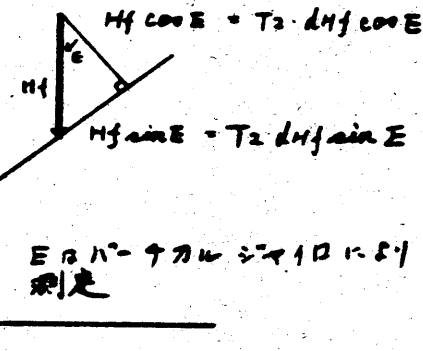 Hf cos E = T2・dHf cos E
E
Hf
Hf sin E = T2・dHf sin E
Eはバーチカルジャイロにより
測定